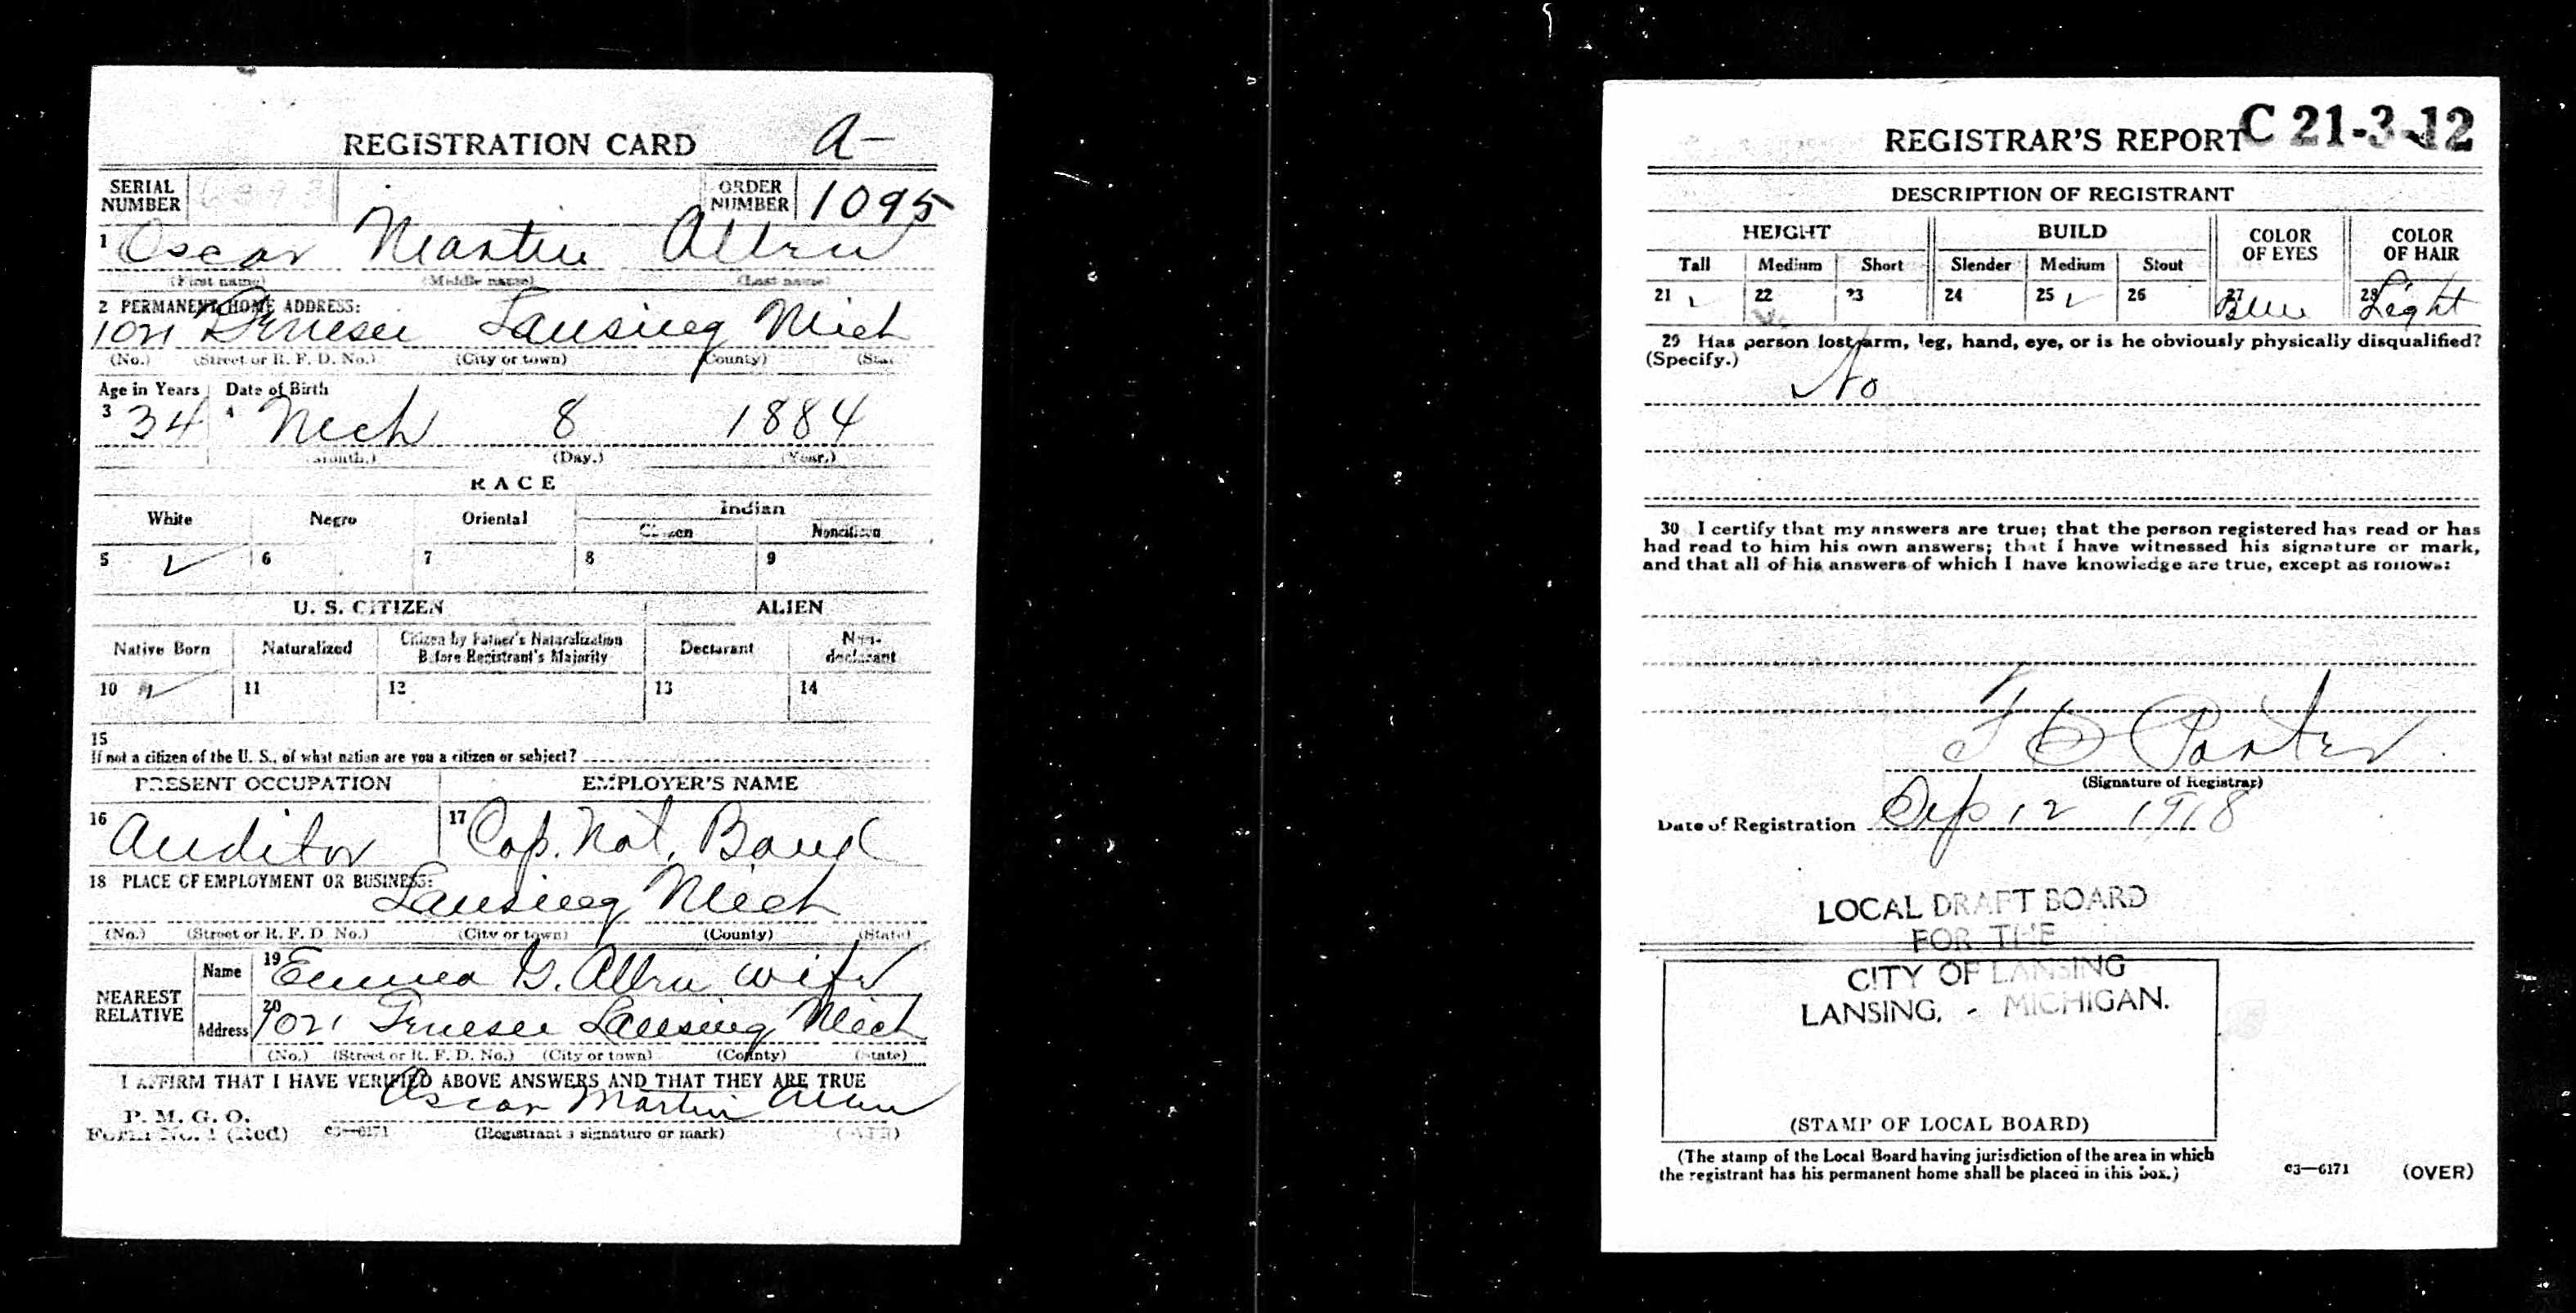 REGISTRATION CARD A-
SERIAL NUMBER ORDER NUMBER 1095
1 Oscar Martin Allen
(First name) (Middle name) (Last name)
2 PERMANENT HOME ADDRESS:
1021 Genesee Lansing Mich
(No.) (Street or R. F. D. No.) (City or town) (County) (State)
Age in Years Date of Birth
3 34 4 Mch 8 1884
(Month.) (Day.) (Year.)
RACE
White Negro Oriental Indian
Citizen Noncitizen
5 ✓ 6 7 8 9
U. S. CITIZEN ALIEN
Native Born Naturalized Citizen by Father's Naturalization Before Registrant's Majority Declarant Non-declarant
10 ✓ 11 12 13 14
15
If not a citizen of the U. S., of what nation are you a citizen or subject?
PRESENT OCCUPATION EMPLOYER'S NAME
16 Auditor 17 Cap. Nat. Bank
18 PLACE OF EMPLOYMENT OR BUSINESS:
Lansing Mich
(No.) (Street or R. F. D. No.) (City or town) (County) (State)
NEAREST RELATIVE
Name 19 Emma G. Allen wife
Address 20 1021 Genesee Lansing Mich
(No.) (Street or R. F. D. No.) (City or town) (County) (State)
I AFFIRM THAT I HAVE VERIFIED ABOVE ANSWERS AND THAT THEY ARE TRUE
Oscar Martin Allen
P. M. G. O.
Form No. 1 (Red) c3—6171 (Registrant's signature or mark) (OVER)
REGISTRAR'S REPORT C 21-3-12
DESCRIPTION OF REGISTRANT
HEIGHT BUILD COLOR OF EYES COLOR OF HAIR
Tall Medium Short Slender Medium Stout
21 ✓ 22 23 24 25 ✓ 26 27 Blue 28 Light
29 Has person lost arm, leg, hand, eye, or is he obviously physically disqualified?
(Specify.)
No
30 I certify that my answers are true; that the person registered has read or has
had read to him his own answers; that I have witnessed his signature or mark,
and that all of his answers of which I have knowledge are true, except as follows:
Porter
(Signature of Registrar)
Date of Registration Sep 12 1918
LOCAL DRAFT BOARD
FOR THE
CITY OF LANSING
LANSING, - MICHIGAN.
(STAMP OF LOCAL BOARD)
(The stamp of the Local Board having jurisdiction of the area in which
the registrant has his permanent home shall be placed in this box.)
c3—6171 (OVER)